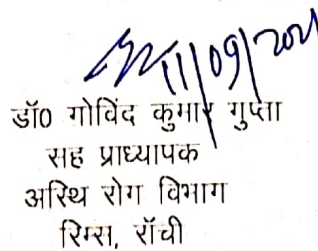 11/09/2021
डॉ० गोविंद कुमार गुप्ता
सह प्राध्यापक
अस्थि रोग विभाग
रिम्स, राँची